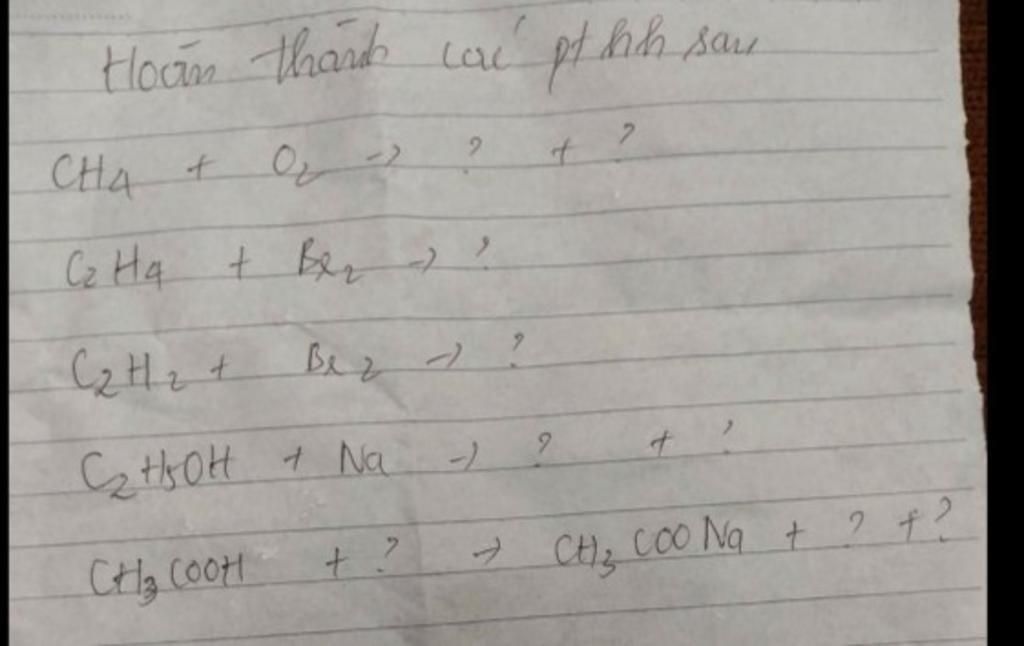 Hoàn thành các pt hh sau
CH4 + O2 → ? + ?
C2H4 + Br2 → ?
C2H2 + Br2 → ?
C2H5OH + Na → ? + ?
CH3COOH + ? → CH3COONa + ? + ?